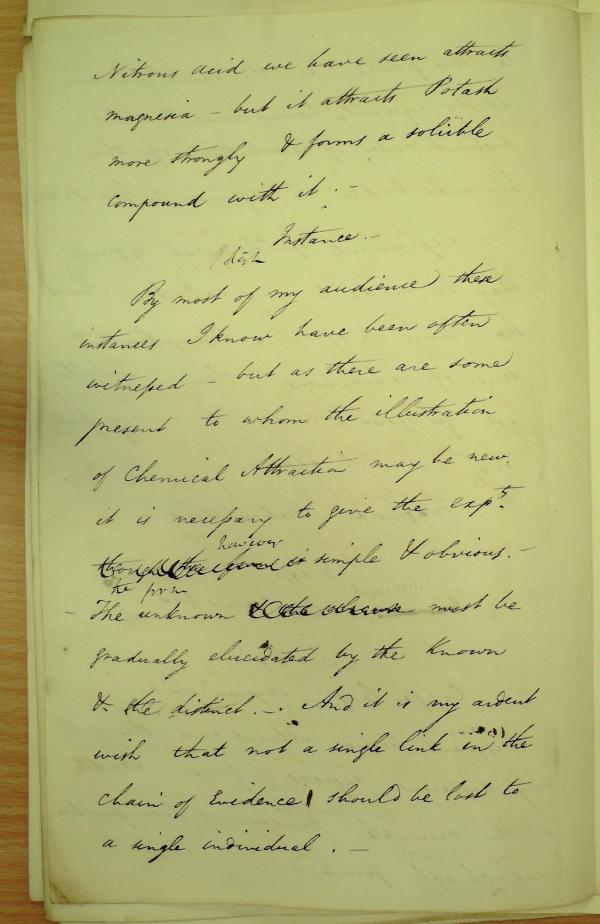 Nitrous acid we have seen attracts
magnesia – but it attracts Potash
more strongly & forms a soluble
compound with it. –
Instance. –
Potash
By most of my audience these
instances I know have been often
witnessed – but as there are some
present to whom the illustration
of Chemical Attraction may be new.
it is necessary to give the expts.
however
simple & obvious. –
– The unknown must be
gradually elucidated by the Known
& the distinct. –. And it is my ardent
wish that not a single link in the
chain of Evidence should be lost to
a single individual. –